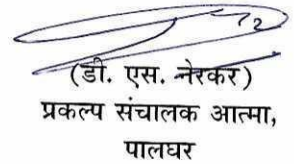 (डी. एस. नेरकर)
प्रकल्प संचालक आत्मा,
पालघर